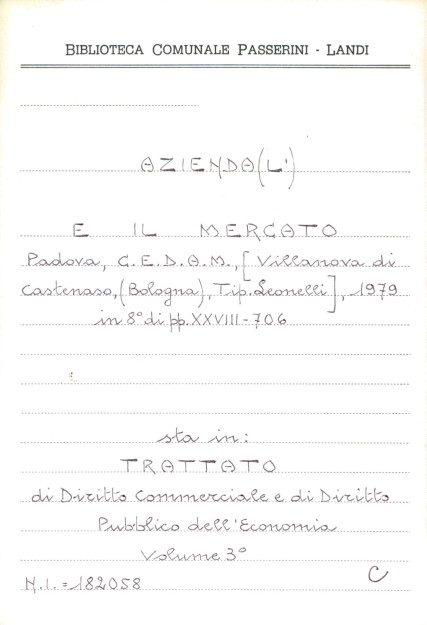 BIBLIOTECA COMUNALE PASSERINI - LANDI
AZIENDA(L')
E IL MERCATO
Padova, C.E.D.A.M., [Villanova di
Castenaso, (Bologna), Tip. Leonelli], 1979
in 8° di pp. XXVIII-706
sta in:
TRATTATO
di Diritto Commerciale e di Diritto
Pubblico dell'Economia
Volume 3°
N.I. = 182058
C